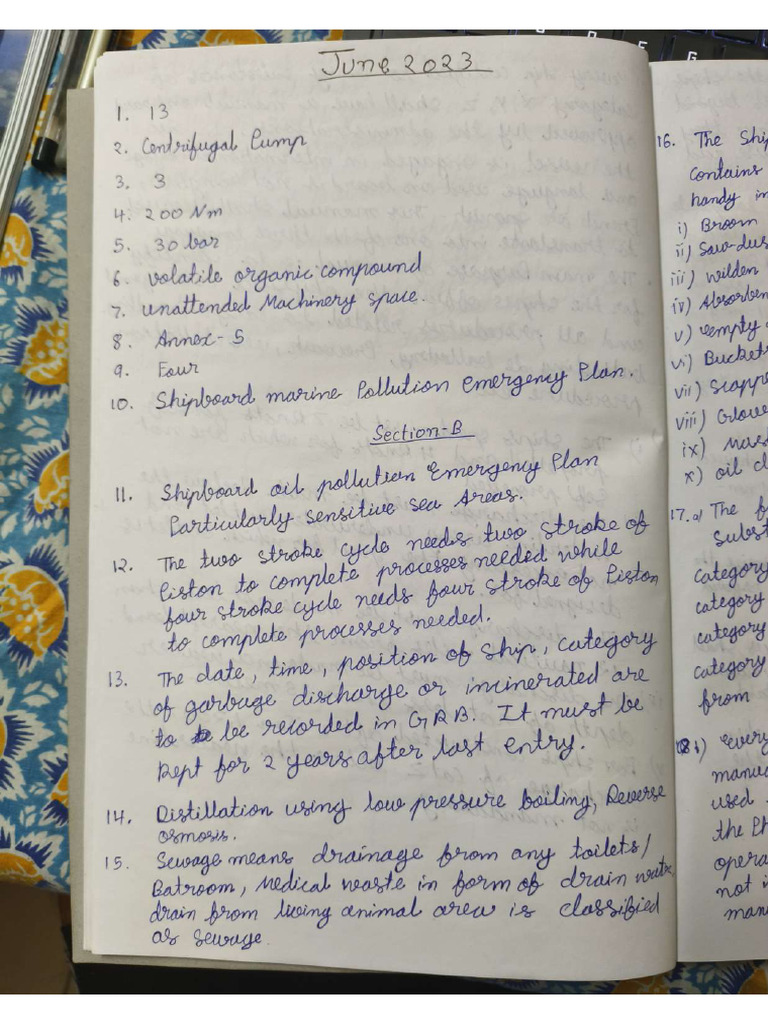 June 2023
1. 13
2. Centrifugal Pump
3. 3
4. 200 Nm
5. 30 bar
6. volatile organic compound
7. unattended Machinery space.
8. Annex-5
9. Four
10. Shipboard marine Pollution emergency Plan.
Section-B
11. Shipboard oil pollution Emergency Plan
Particularly sensitive sea Areas.
12. The two stroke cycle needs two stroke of
Piston to complete processes needed while
four stroke cycle needs four stroke of Piston
to complete processes needed.
13. The date, time, position of ship, category
of garbage discharge or incinerated are
to be recorded in GRB. It must be
Kept for 2 years after last entry.
14. Distillation using low pressure boiling, Reverse
osmosis.
15. Sewage means drainage from any toilets/
Batroom, Medical waste in form of drain
drain from living animal area is classified
as sewage.
16. The Ship
contains
handy in
i) Broom
ii) Saw-dus
iii) wilden
iv) Absorben
v) empty
vi) Bucket
vii) Scappe
viii) Glove
ix)
x) oil cl
17. a) The f
Subst
Category
category
category
category
from
18 i) every
manua
used
the Ph
opera
not i
man